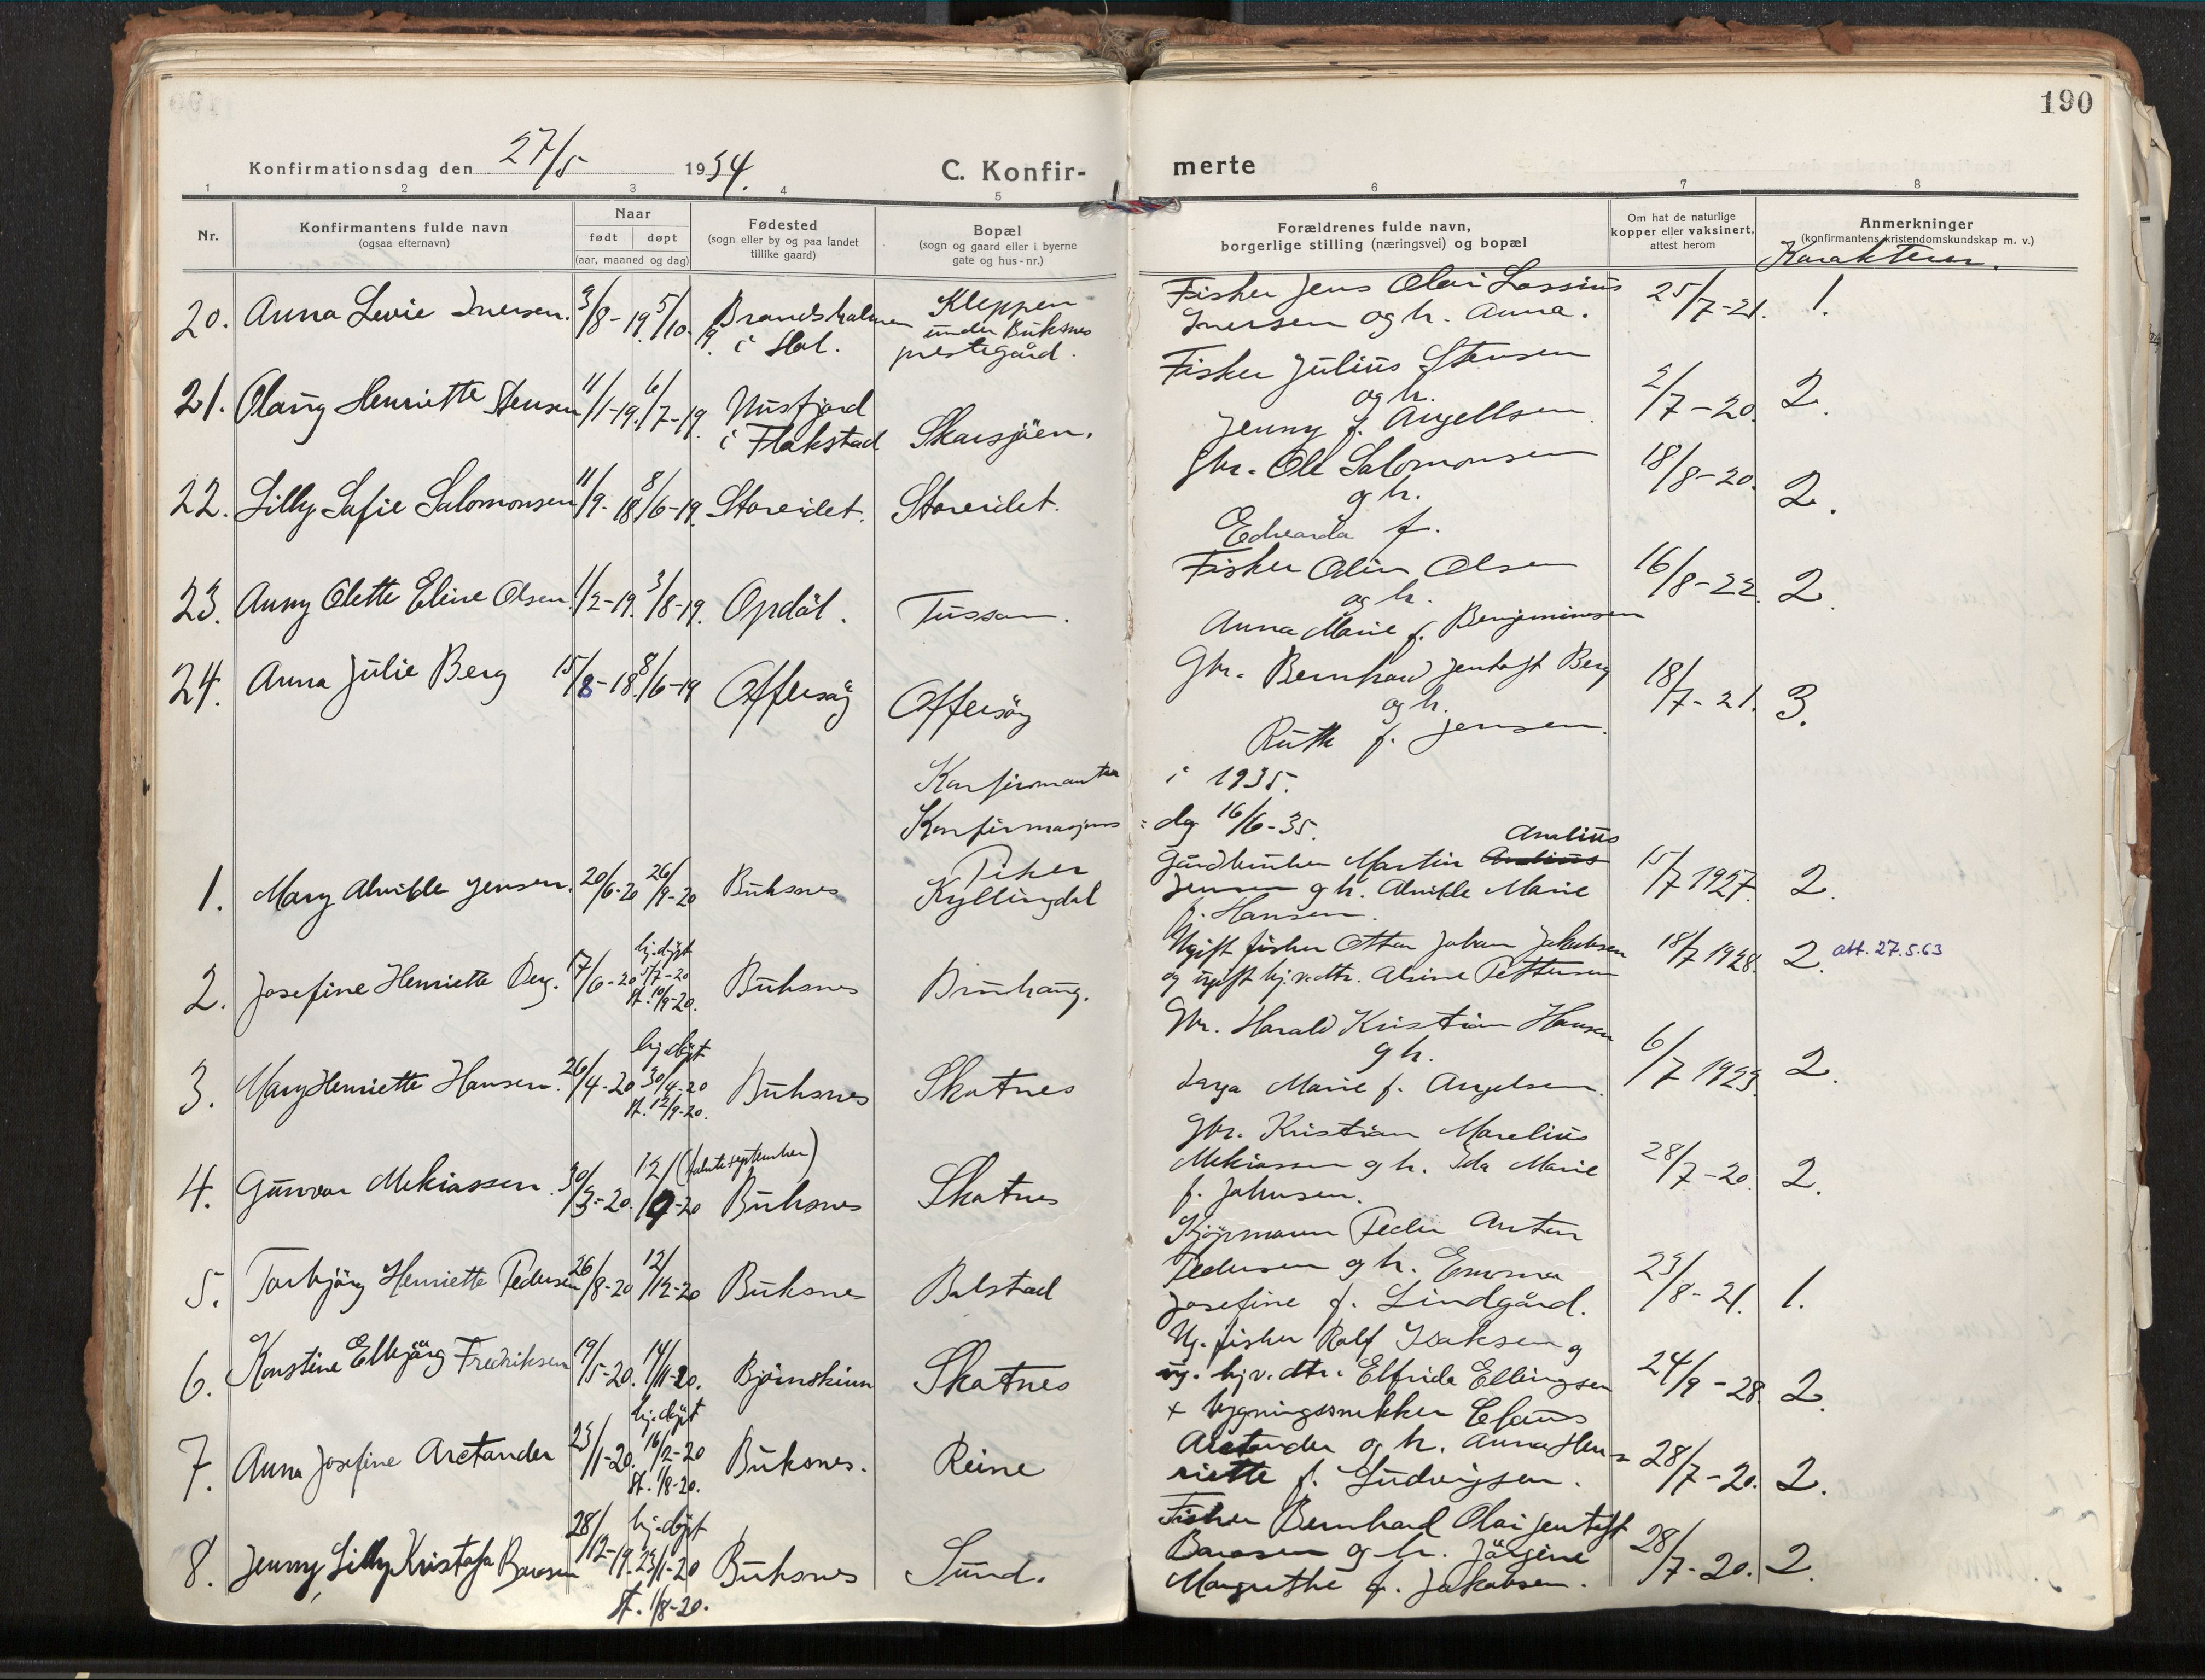 190
Konfirmationsdag den 27/5 1934.
C. Konfir-
merte
1 2 3 4 5 6 7 8
Nr.
Konfirmantens fulde navn
(ogsaa efternavn)
Naar
født døpt
(aar, maaned og dag)
Fødested
(sogn eller by og paa landet
tillike gaard)
Bopæl
(sogn og gaard eller i byerne
gate og hus-nr.)
Forældrenes fulde navn,
borgerlige stilling (næringsvei) og bopæl
Om hat de naturlige
kopper eller vaksinert,
attest herom
Anmerkninger
(konfirmantens kristendomskundskap m. v.)
Karakterer.
20. Anna Levie Iversen. 3/8-19. 5/10. 19. Brandsholmen
i Hol.
Kleppen
under Buksnes
prestegård.
Fisker Jens Olai Lossius
Iversen og h. Anna.
25/7-21. 1.
21. Olaug Henriette Stensen 11/1-19. 6/7-19. Nusfjord
i Flakstad
Skarsjöen.
Fisker Julius Stensen
og h.
Jenny f. Angellsen.
2/7-20. 2.
22. Lilly Sofie Salomonsen 11/9-18 8/6-19. Storeidet. Storeidet.
Gbr. Ole Salomonsen
og h.
Edvarda f.
18/8-20. 2.
23. Anny Olette Eline Olsen 11/2-19. 3/8-19. Opdöl. Tussan.
Fisker Odin Olsen
og h.
Anna Marie f. Benjaminsen
16/8-22. 2.
24. Anna Julie Berg 15/8-18. 8/6-19 Offersöy Offersöy
Gbr. Bernhard Jentoft Berg
og h.
Ruth f. Jensen.
18/7-21. 3.
Konfirmanter i 1935.
Konfirmasjons- dag 16/6-35.
Piker
1. Mary Alvilde Jensen. 20/6-20 26/9-20 Buksnes Kyllingdal
Gårdbruker Martin Analius
Jensen og h. Alvilde Marie
f. Hansen.
15/7 1927. 2.
2. Josefine Henriette Berg. 17/6-20 hj.døpt
5/7-20
st. 10/9-20.
Buksnes Brunhaug.
Ugift fisker Otton Johan Jakobsen
og ugift hj.v.dtr. Alsine Pettersen
18/7 1928. 2. att. 27.5.63
3. Mary Henriette Hansen. 26/4-20 hj.døpt
30/4-20
st. 12/9-20.
Buksnes Skotnes
Gbr. Harald Kristian Hansen
og h.
Inga Marie f. Angelsen.
6/7 1923. 2.
4. Gunvor Mekiassen. 30/3-20. 12/9-20 (tolvte september)
Buksnes Skotnes
Gbr. Kristian Marelius
Mekiassen og h. Ida Marie
f. Johnsen.
28/7-20. 2.
5. Torbjörg Henriette Pedersen 26/8-20 12/12-20 Buksnes Balstad
Kjöpmann Peder Anton
Pedersen og h. Emma
Josefine f. Lindgård.
23/8-21. 1.
6. Konstine Ellbjörg Fredriksen 19/5-20. 14/11-20. Bjørnskinn Skotnes
Ug. fisker Rolf Isaksen og
ug. hj.v.dtr. Elfrida Ellingsen
24/9-28. 2.
7. Anna Josefine Arctander 23/1-20. hj.døpt
16/2-20
st. 1/8-20.
Buksnes. Reine
+ bygningssnekker Claus
Arctander og h. Anna Hen-
riette f. Ludvigsen.
28/7-20. 2.
8. Jenny Lilly Kristofa Baosen 28/12-19. hj.døpt
23/1-20
st. 1/8-20.
Buksnes Sund.
Fisker Bernhard Olai Jentoft
Baosen og h. Jörgine
Margrethe f. Jakobsen.
28/7-20. 2.